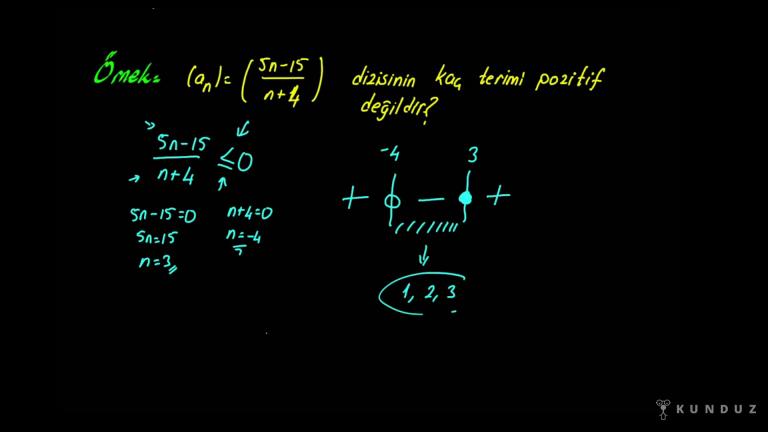 Örnek= (aₙ)= ( 5n-15 / n+4 ) dizisinin kaç terimi pozitif
değildir?
5n-15 / n+4 ≤ 0
-4 3
+ - +
5n-15=0 n+4=0
5n=15 n=-4
n=3
1, 2, 3
KUNDUZ